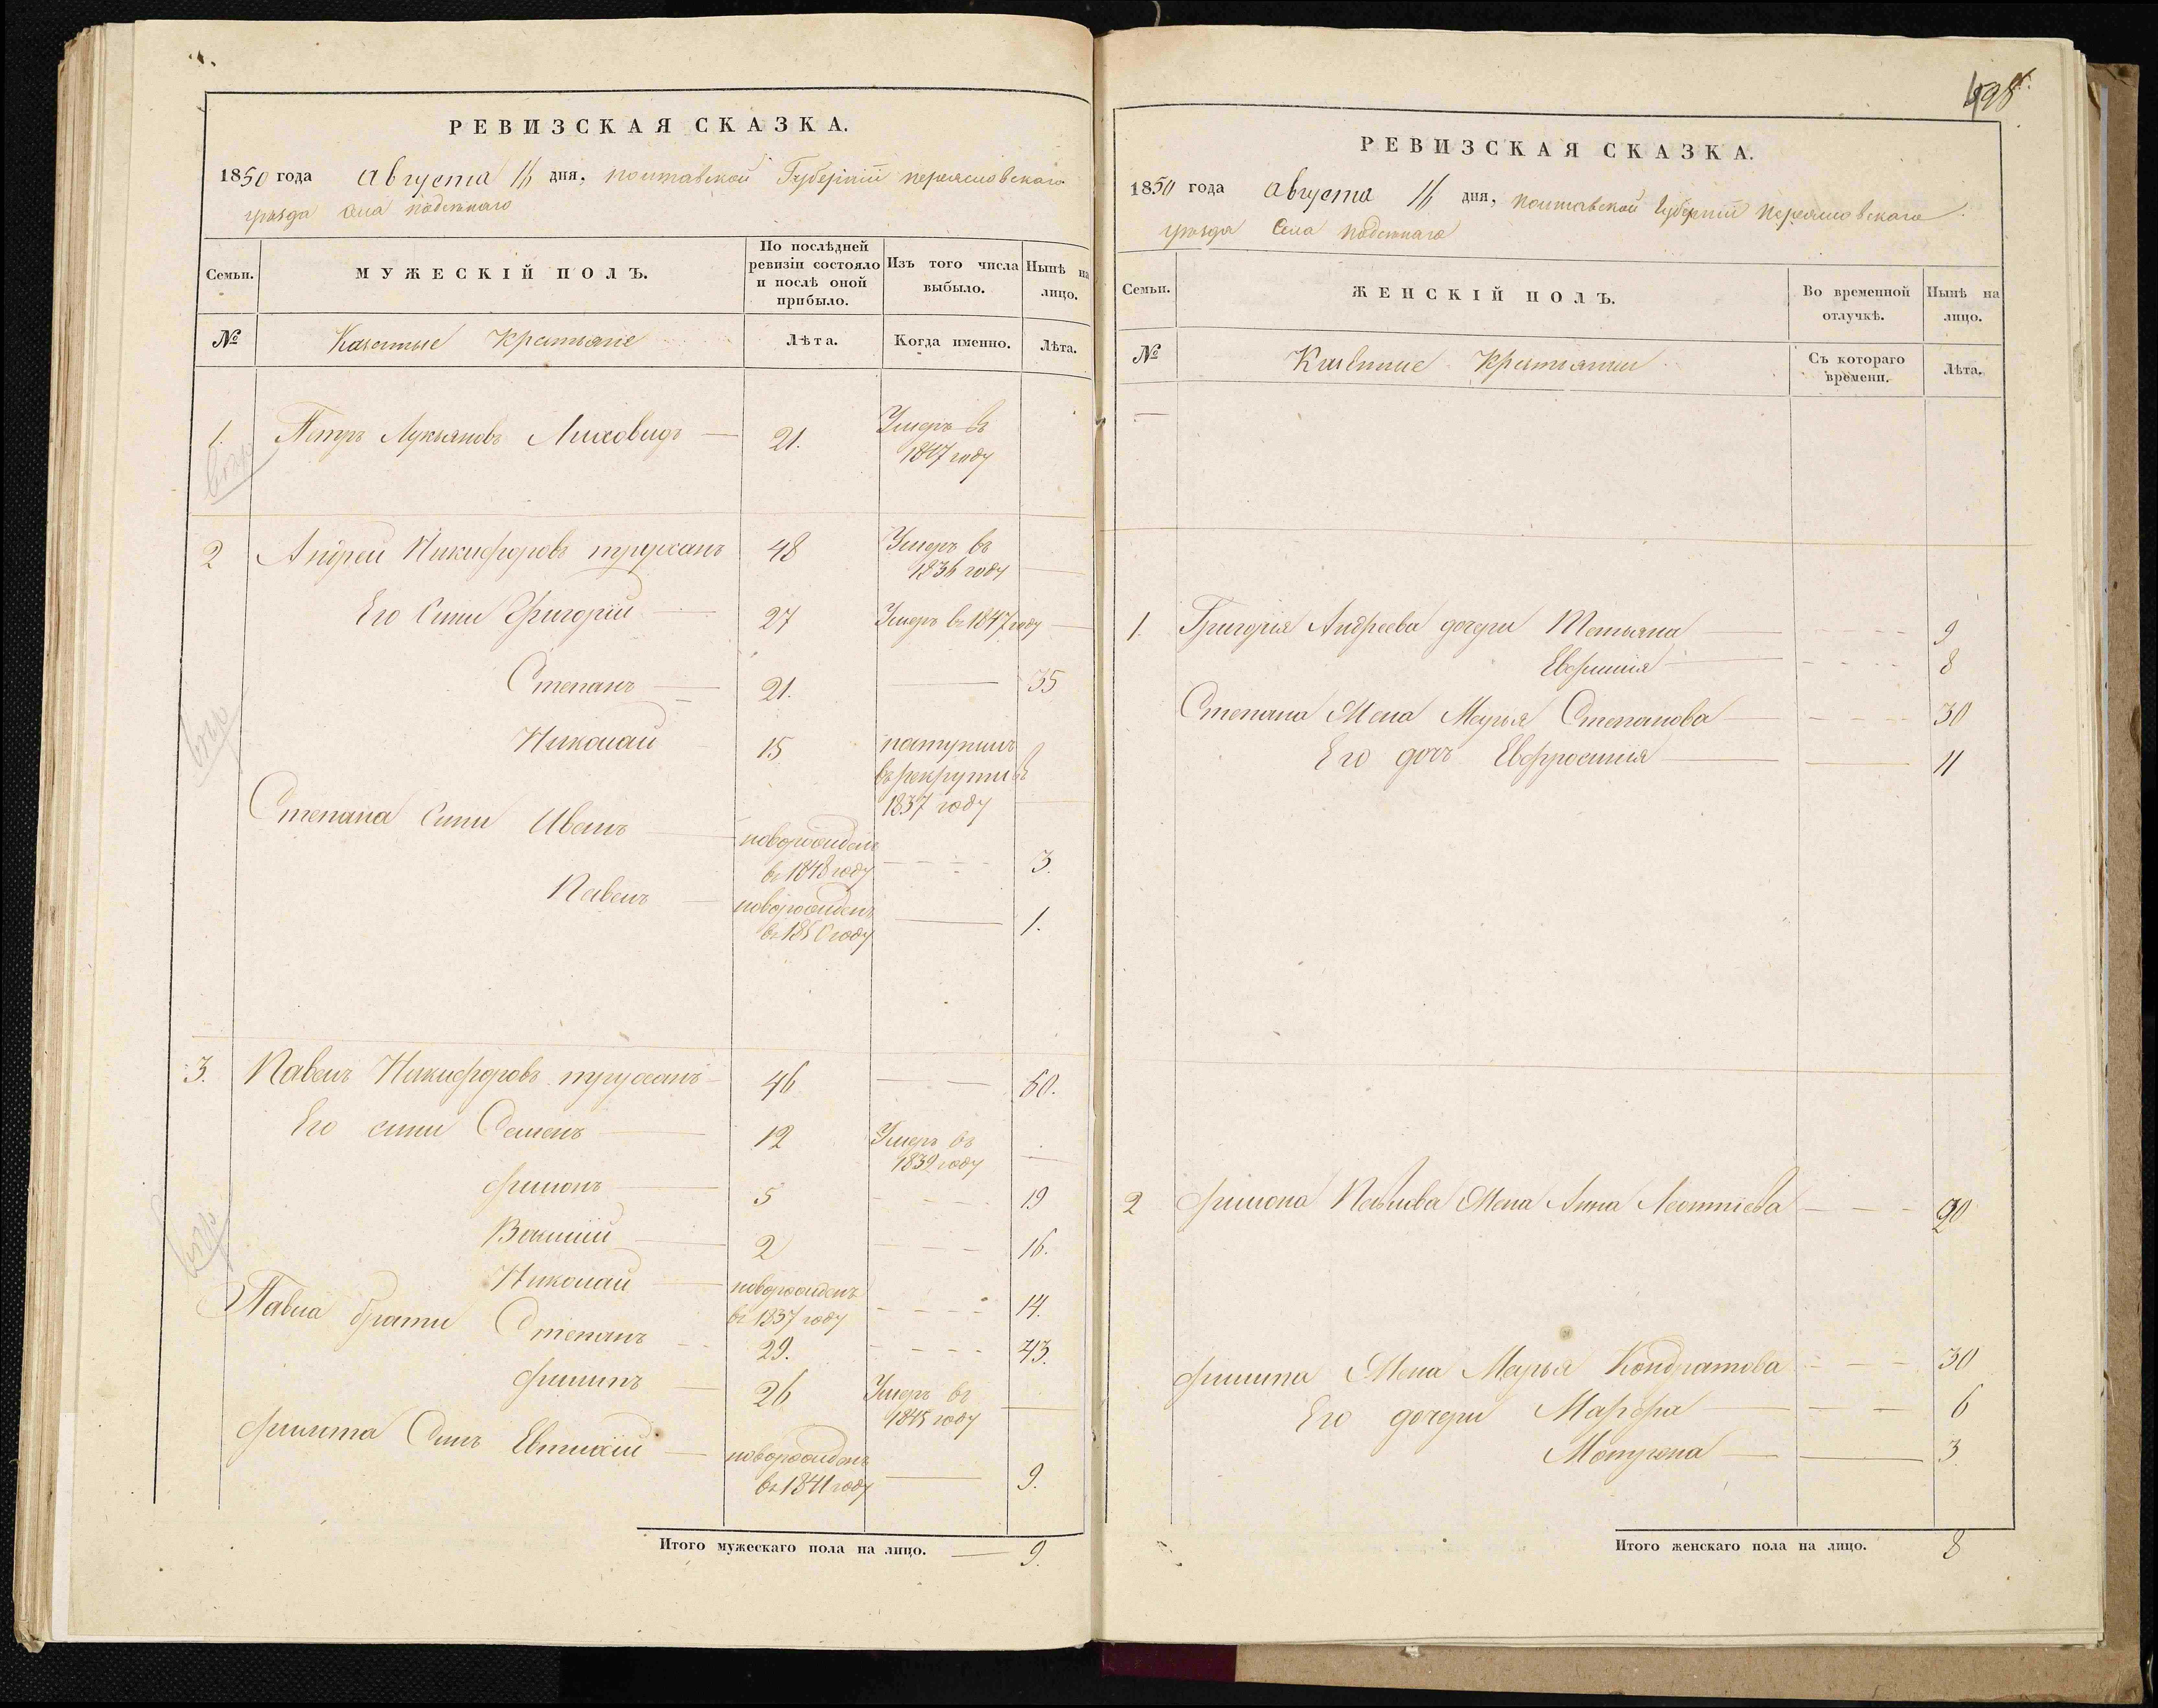 498
РЕВИЗСКАЯ СКАЗКА.
1850 года Августа 16 дня, полтавской Губерніи переяславскаго
уѣзда села подсѣннаго
Семьи. МУЖЕСКІЙ ПОЛЪ. По послѣдней ревизіи состояло и послѣ оной прибыло. Изъ того числа выбыло. Нынѣ на лицо.
№ Казенные Крестьяне Лѣта. Когда именно. Лѣта.
1. Петръ Лукьяновъ Лиховидъ 21. Умеръ въ
1847 году
2 Андрей Никифоровъ труханъ 48 Умеръ въ
1836 году
Его Сини Григорій 27 Умеръ въ 1847 году
Степанъ 21. 35
Николай 15 поступилъ
въ рекрути въ
1837 году
Степана Сини Иванъ новорожденъ
въ 1848 году 3.
Павелъ новорожденъ
въ 1850 году 1.
3. Павелъ Никифоровъ труханъ 46 60.
Его сини Семенъ 12 Умеръ въ
1839 году
Филипъ 5 19
Василій 2 16.
Николай новорожденъ
въ 1837 году 14.
Павла брати Степанъ 29. 43.
Филипъ 26 Умеръ въ
1845 году
Филипа Синъ Евтихій новорожденъ
въ 1841 году 9.
Итого мужескаго пола на лицо. 9.
РЕВИЗСКАЯ СКАЗКА.
1850 года Августа 16 дня, полтавской Губерніи переяславскаго
уѣзда Села подсѣннаго
Семьи. ЖЕНСКІЙ ПОЛЪ. Во временной отлучкѣ. Нынѣ на лицо.
№ Крестьянки Съ котораго времени. Лѣта.
1. Григорія Андреева дочери Татьяна 9
Евфимия 8
Степана Жена Марья Степанова 30
Его дочъ Евфросиния 11
2 Павлова Жена Анна Леонтіева 20
Филипа Жена Марья Кондратова 30
Его дочери Марфа 6
Мотрона 3
Итого женскаго пола на лицо. 8